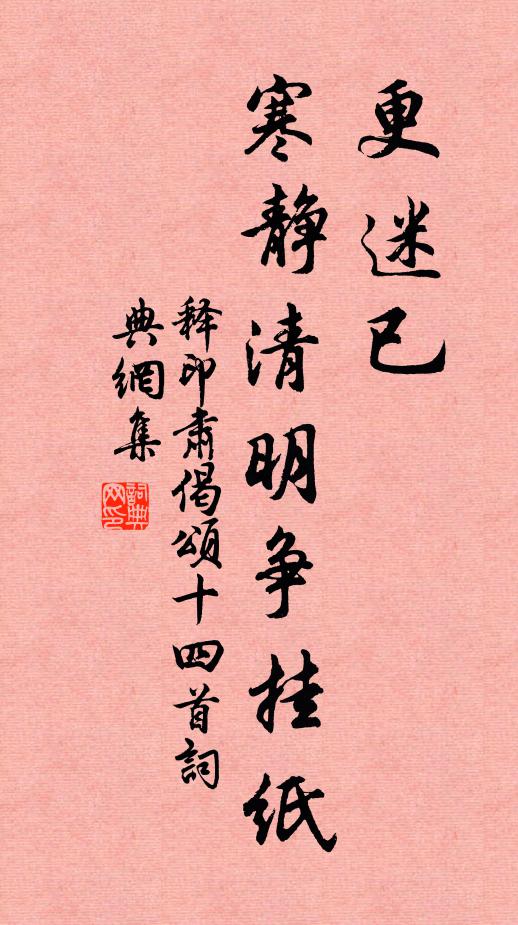 更迷已
寒静清明争挂纸
释印肃偈頌十四首詞
典網集
詞典
网印